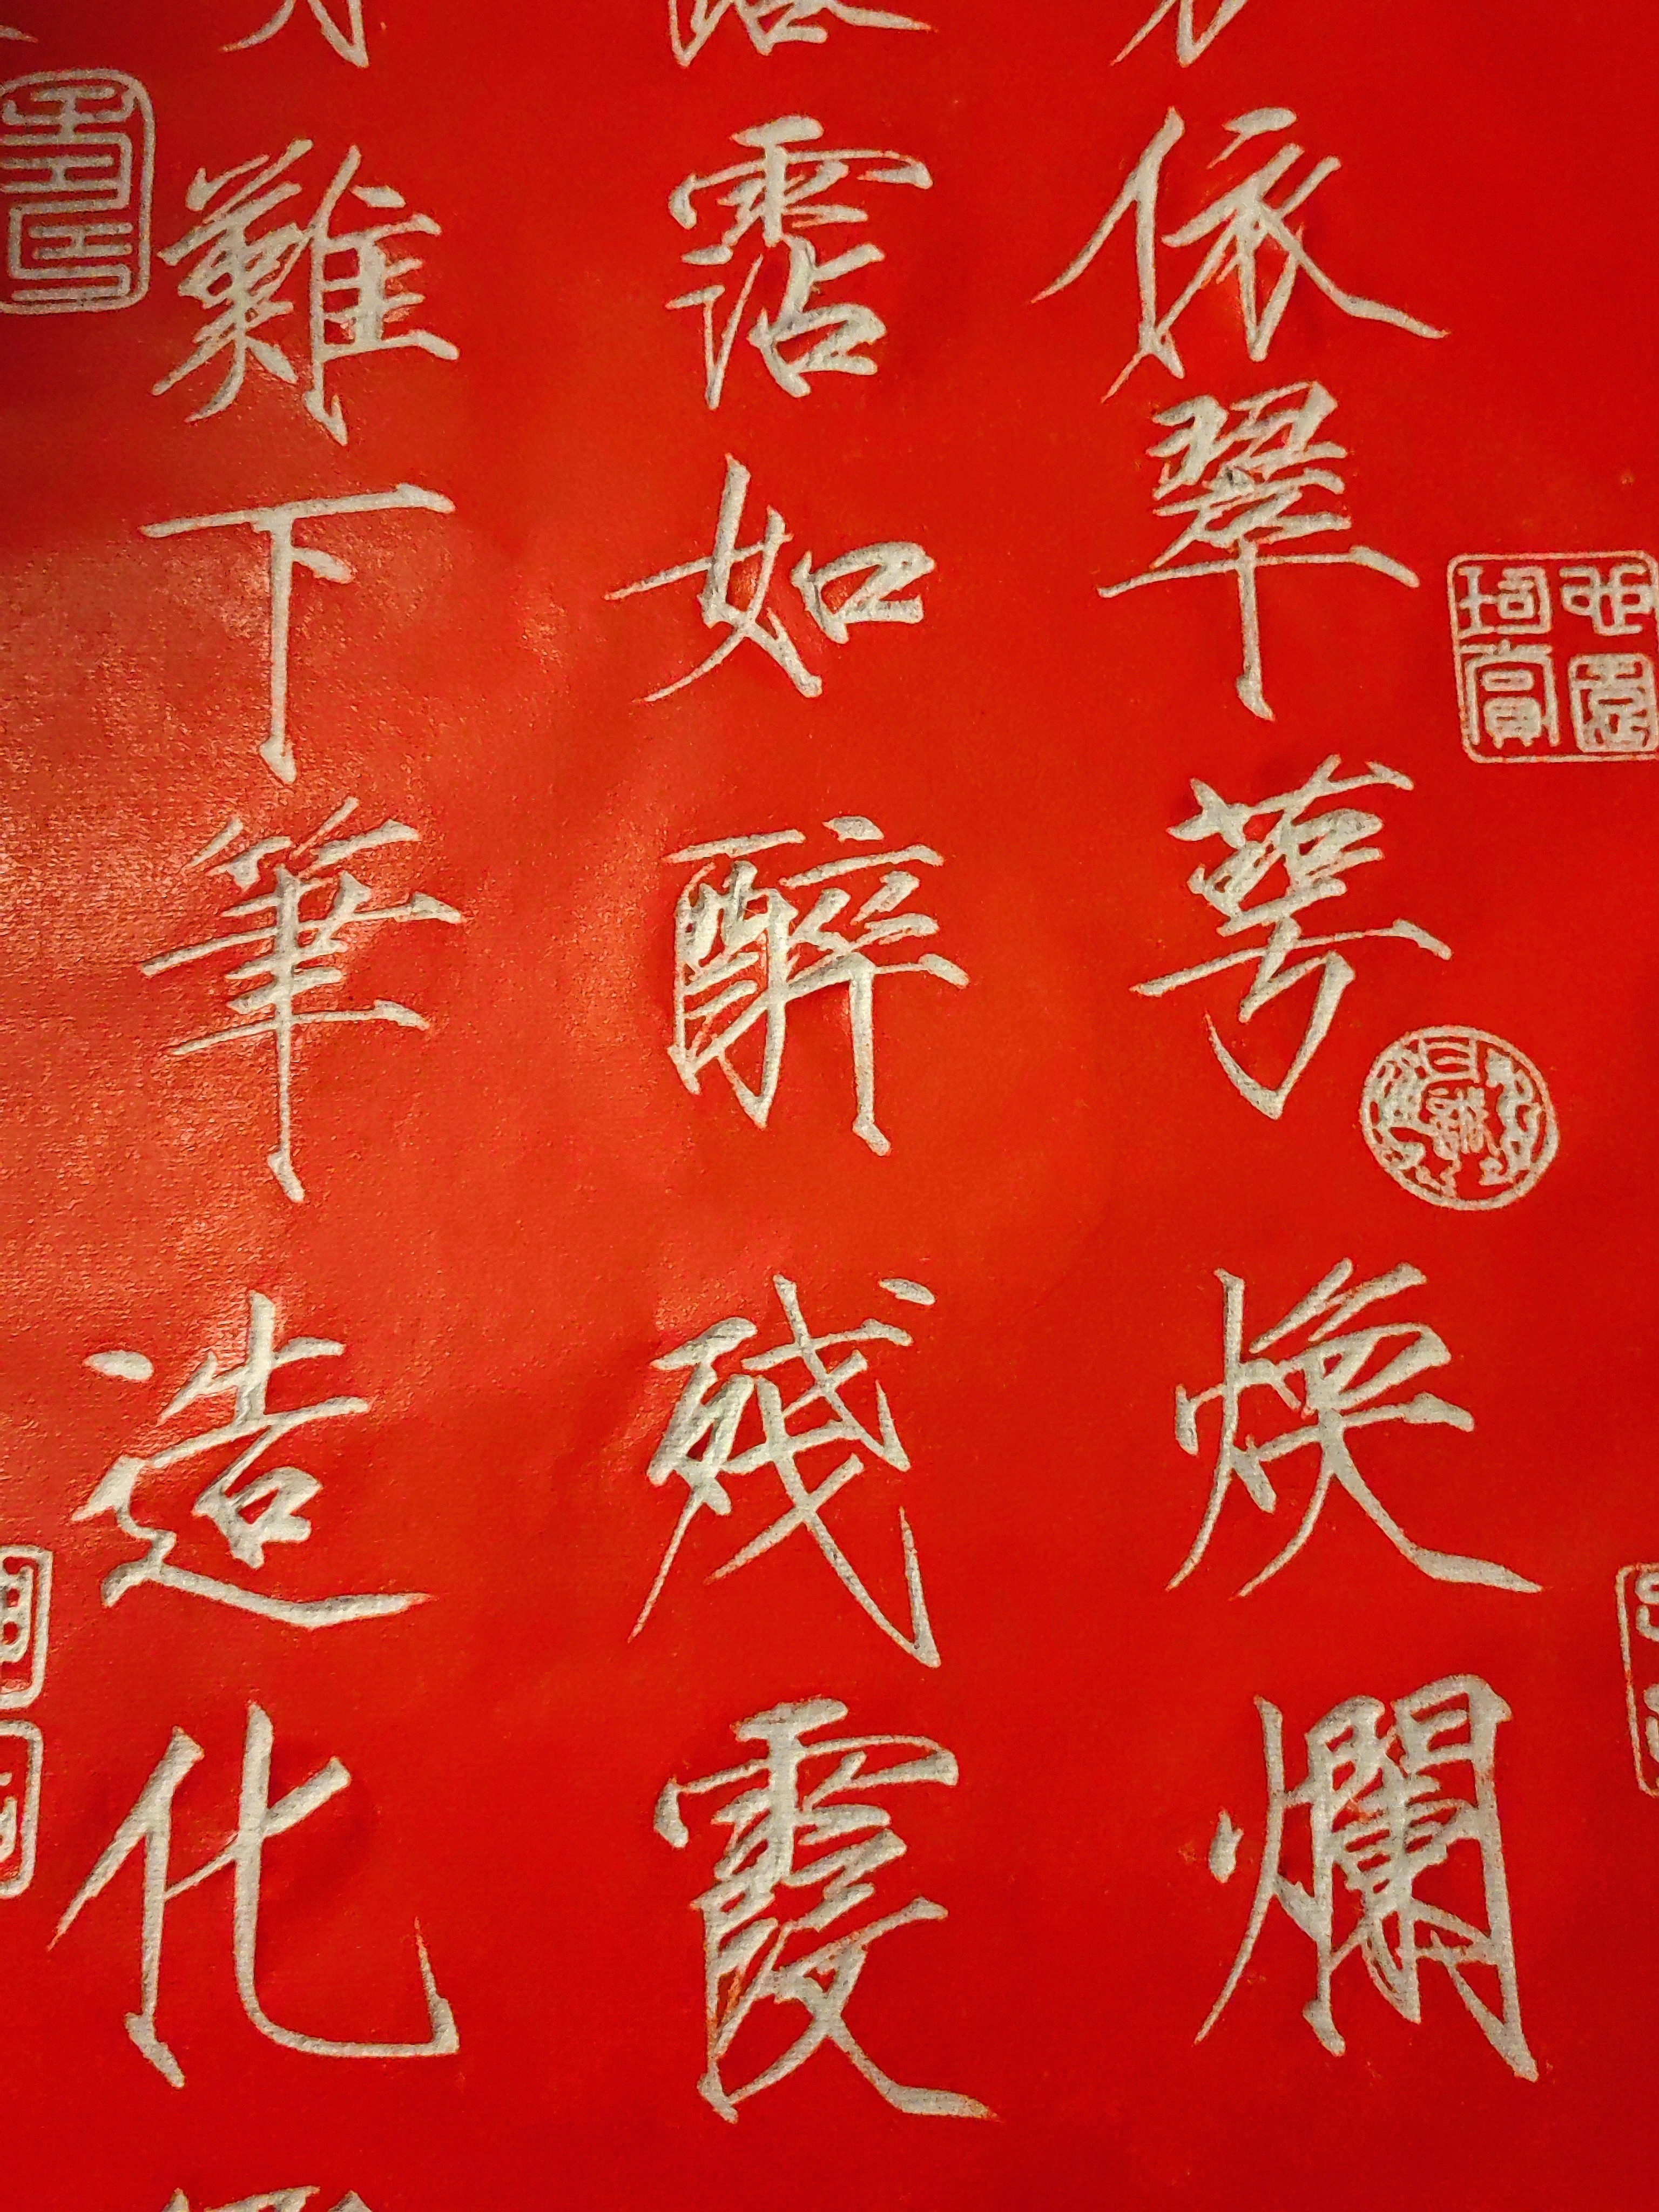 依翠萼煥爛
霑如醉殘霞
難下筆造化